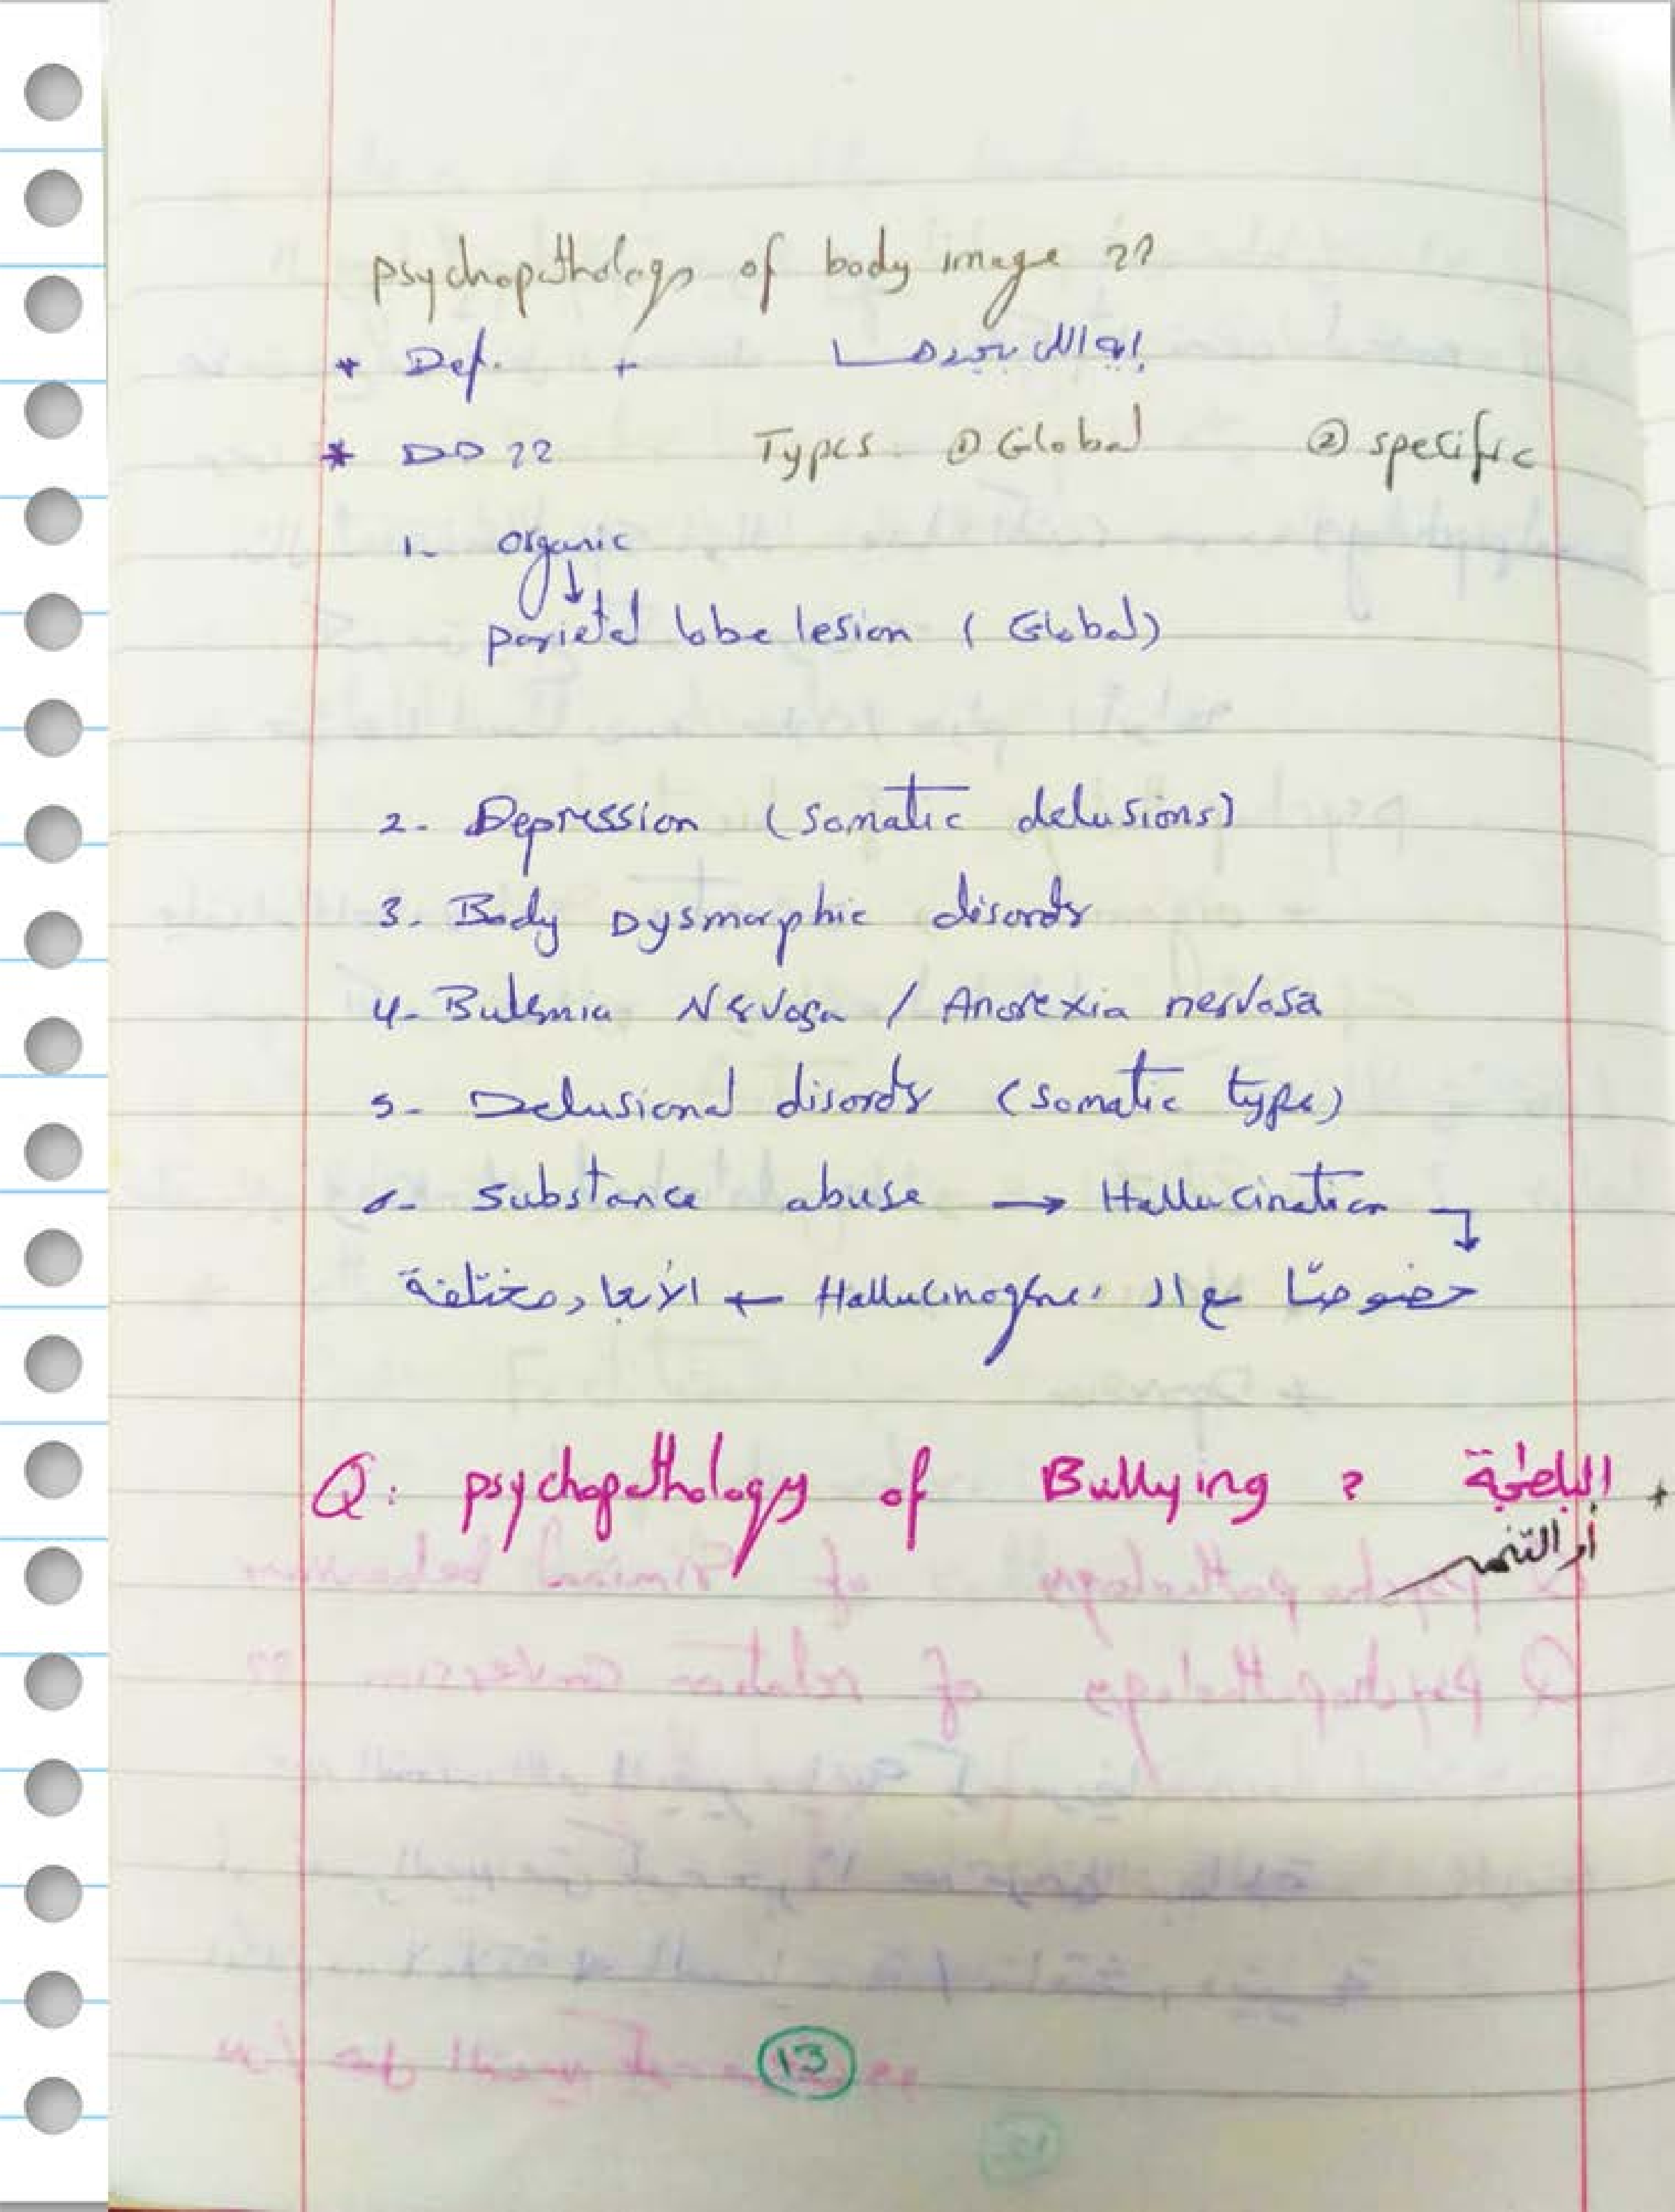 psychopathology of body image ??
* Def. + إيه اللى بيحددها
* DD ?? Types: ① Global ② specific
1- organic
↓
parietal lobe lesion ( Global )
2- Depression ( somatic delusions )
3. Body Dysmorphic disorder
4- Bulemia Nervosa / Anorexia nervosa
5- Delusional disorder ( somatic type )
6- substance abuse → Hallucination
خصوصًا مع ال Hallucinogens ← الأبعاد مختلفة
Q: psychopathology of Bullying ? البلطجة *
أو التنمر
13